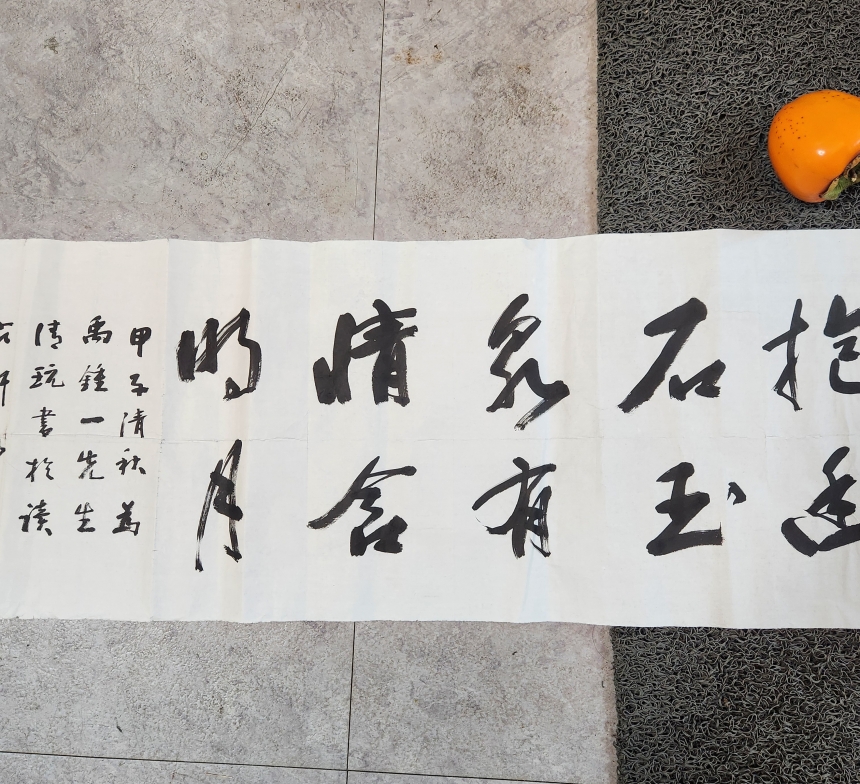 抱幽
石玉
泉有
情含
明月
甲子清秋為
禹鍾一先生
清玩書於讀